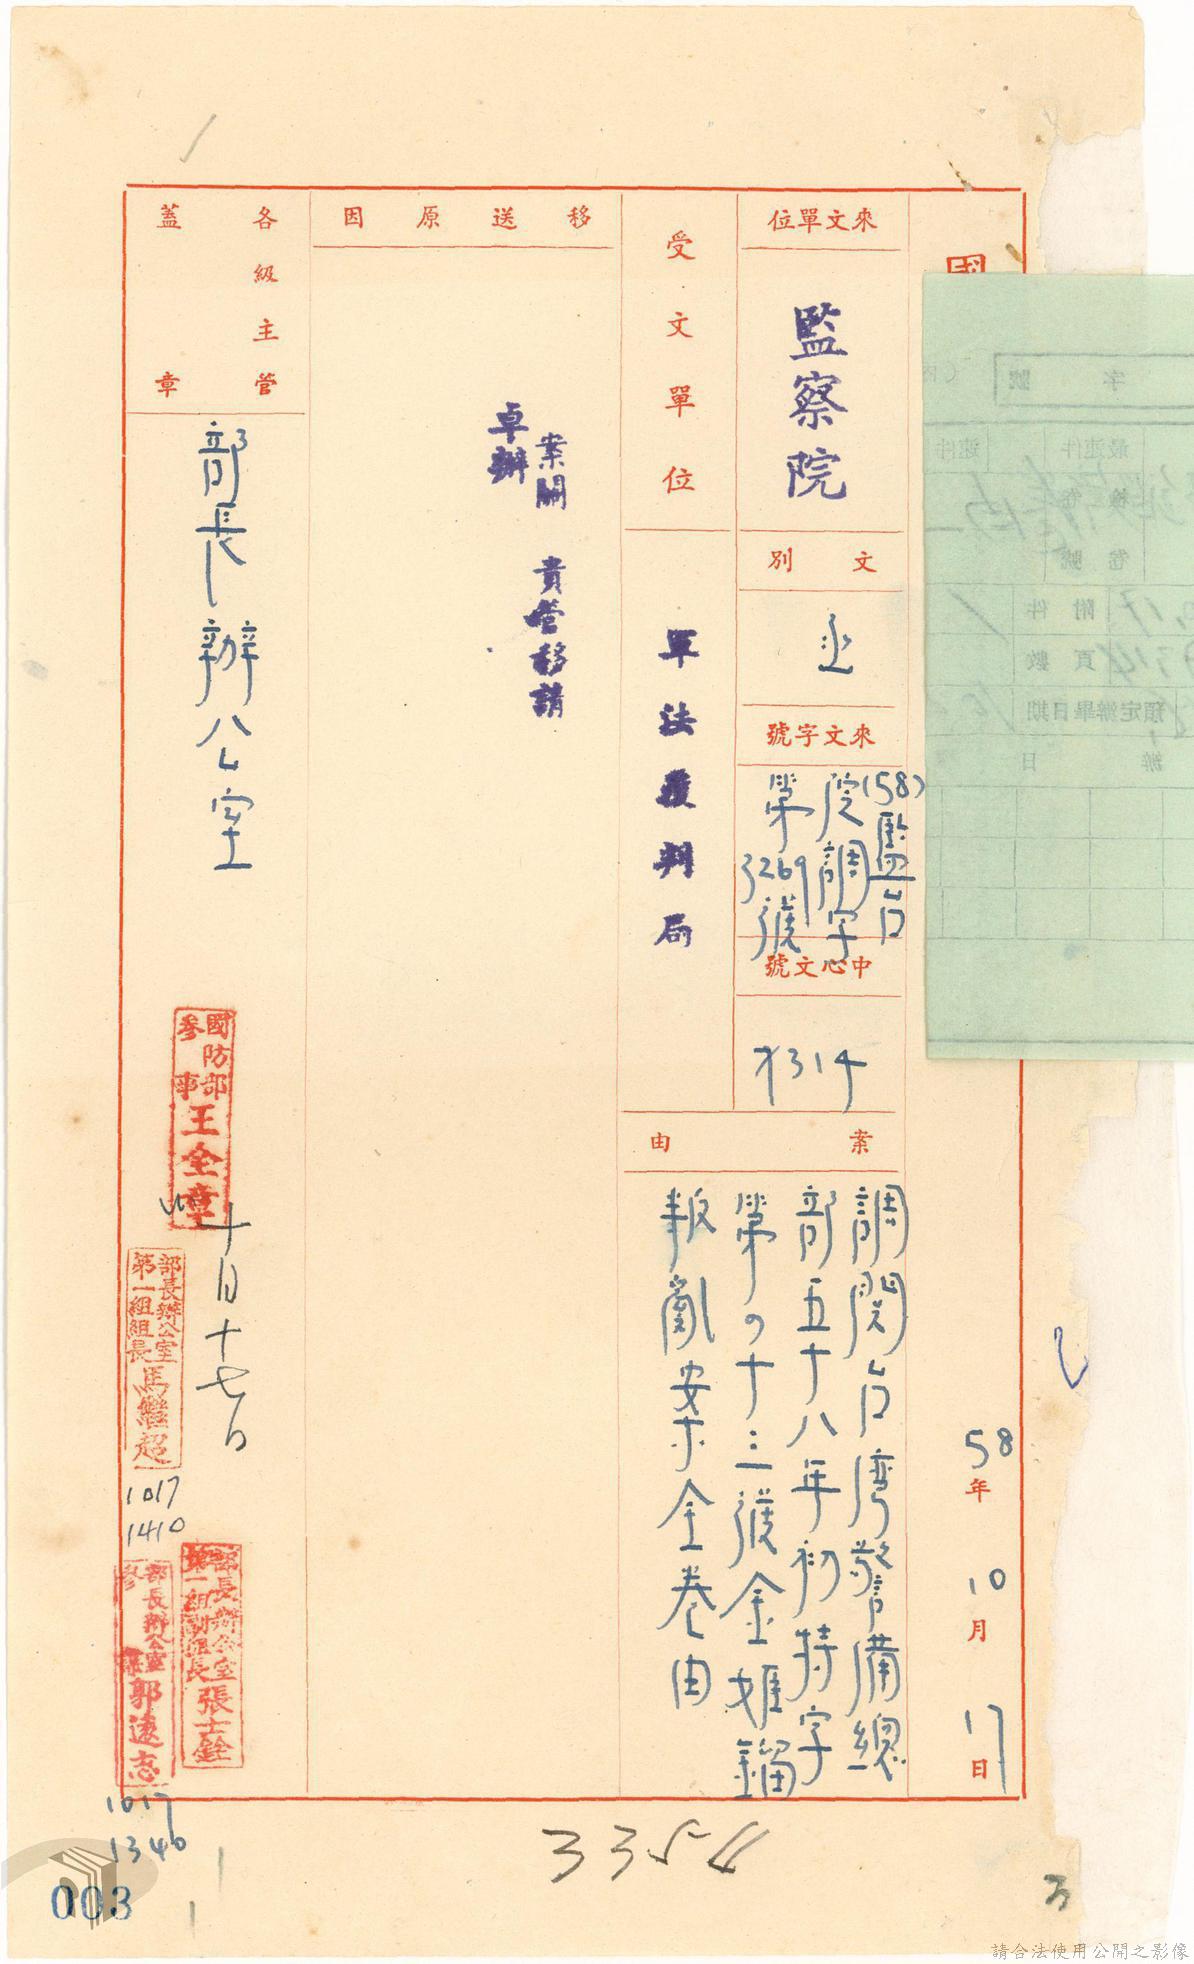 國
58年10月17日
來文單位
監察院
文別
來文字號
(58)監台
院調字
第3269號
中心文號
受文單位
軍法覆判局
案由
調閱台湾警備總
部五十八年初特字
第四十三號金
叛亂案全卷由
移送原因
案關 貴管移請
卓辦
各級主管
蓋章
部長辦公室
十月十七日
國防部
參事
王全章
部長辦公室
第一組組長
馬繼超
1017
1410
部長辦公室
第一組副組長
張士銓
部長辦公室
參謀
郭遠志
1017
1340
字號
最速件
速件
檢卷
卷號
附件
頁數
預定辦畢日期
辦
日
3354
003
請合法使用公開之影像